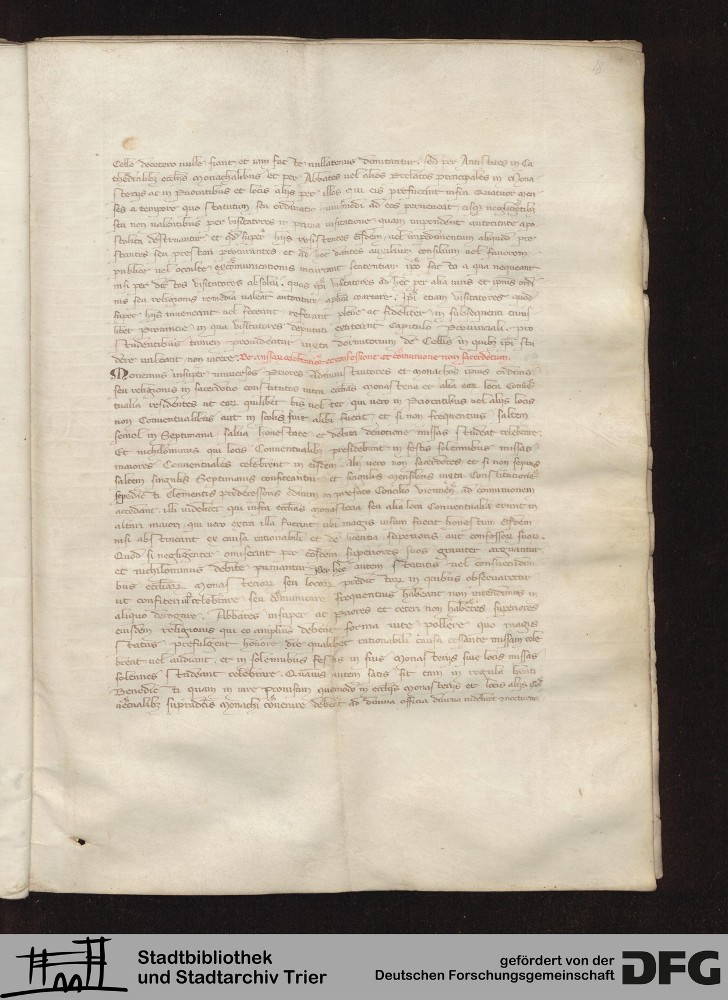 Celle decetero nulle fiant et iam fac te nullatenus dimittantur. sed per Antistites in Ca
thedralibz eccliis Monachalibus et per Abbates uel alios Prelatos principales in Mona
sterijs ac in Prioratibus et locis alijs per illos qui eis prefuerint infra Quatuor men
ses a tempore quo statutum seu ordinatio huiusmodi ad eos peruenerit
seu non ualentibus per visitatores in prima visitatione quam impendent auctoritate apo
stolica destruantur et qd super hijs resistentes eisdem uel impedimentum aliquod pre
stantes seu prestari procurantes et ad hec dantes auxilium consilium uel fauorem
publice uel occulte excommunicationis incurrant sententiam ipso fac to a qua nequeant
nisi per dic tos visitatores absolui. quos ipi visitatores ad hec per alia iuris et ipius ordi
nis seu religionis remedia ualeant auctoritate aplica coartare. Ipi etiam visitatores quod
super hijs inuenerint uel fecerint referant plene ac fideliter in subsequenti cuius
libet Prouincie in qua visitatores deputati extiterint Capitulo Prouinciali. pro
studentibus tamen prouideatur iuxta dormitorium de Cellis in quibz ipi stu
dere ualeant non iacere. De missar celebratione et confessione et comunione non sacerdotum.
Monemus insuper uniuersos Priores administratores et monachos ipius ordinis
seu religionis in sacerdotio constitutos intra ecclias Monasteria et alia eor loca Conuen
tualia residentes ut eor quilibet bis uel ter qui uero in Prioratibus uel alijs locis
non Conuentualibus aut in scolis siue alibi fuerit et si non frequentius saltem
semel in Septimana salua honestate et debita deuotione missas studeat celebrare.
Et nichilominus qui locis Conuentualibus presidebunt in festis solennibus missas
maiores Conuentuales celebrent in eisdem. Alij uero non sacerdotes et si non sepius
saltem singulis Septimanis confiteantur et singulis mensibus iuxta Constitutionem
Clementis predecessoris editam in prefato Concilio Viennen ad comunionem
accedant. illi uidelicet qui infra ecclias monasteria seu alia loca Conuentualia erunt in
altari maiori qui uero extra illa fuerint ubi magis uisum fuerit honestum eisdem
nisi abstineant ex causa rationabili et de licentia superioris aut confessor suor.
Quod si negligenter omiserint per eosdem superiores suos grauiter arguantur
et nichilominus debite puniantur Per hec autem statutis uel consuetudini
bus eccliar Monasterior seu locor predic tor in quibus obseruaretur
ut confiteri celebrare seu comunicare frequentius habeant non intendimus in
aliquo derogare. Abbates insuper ac Priores et ceteri non habentes superiores
eiusdem religionis qui eo amplius debent forma uite pollere quo magis
status prefulgent honore die qualibet rationabili causa cessante missam cele
brent uel audiant. et in solennibus festis in suis Monasterijs siue locis missas
solennes studeant celebrare. Quamuis autem satis sit tam in regula beati
Benedic ti quam in iure Prouisum quomodo in eccliis Monasterijs et locis alijs Con
uentualibz supradictis Monachi conuenire debeant ad diuina officia diurna uidelicet nocturna
Stadtbibliothek
und Stadtarchiv Trier
gefördert von der
Deutschen Forschungsgemeinschaft
DFG